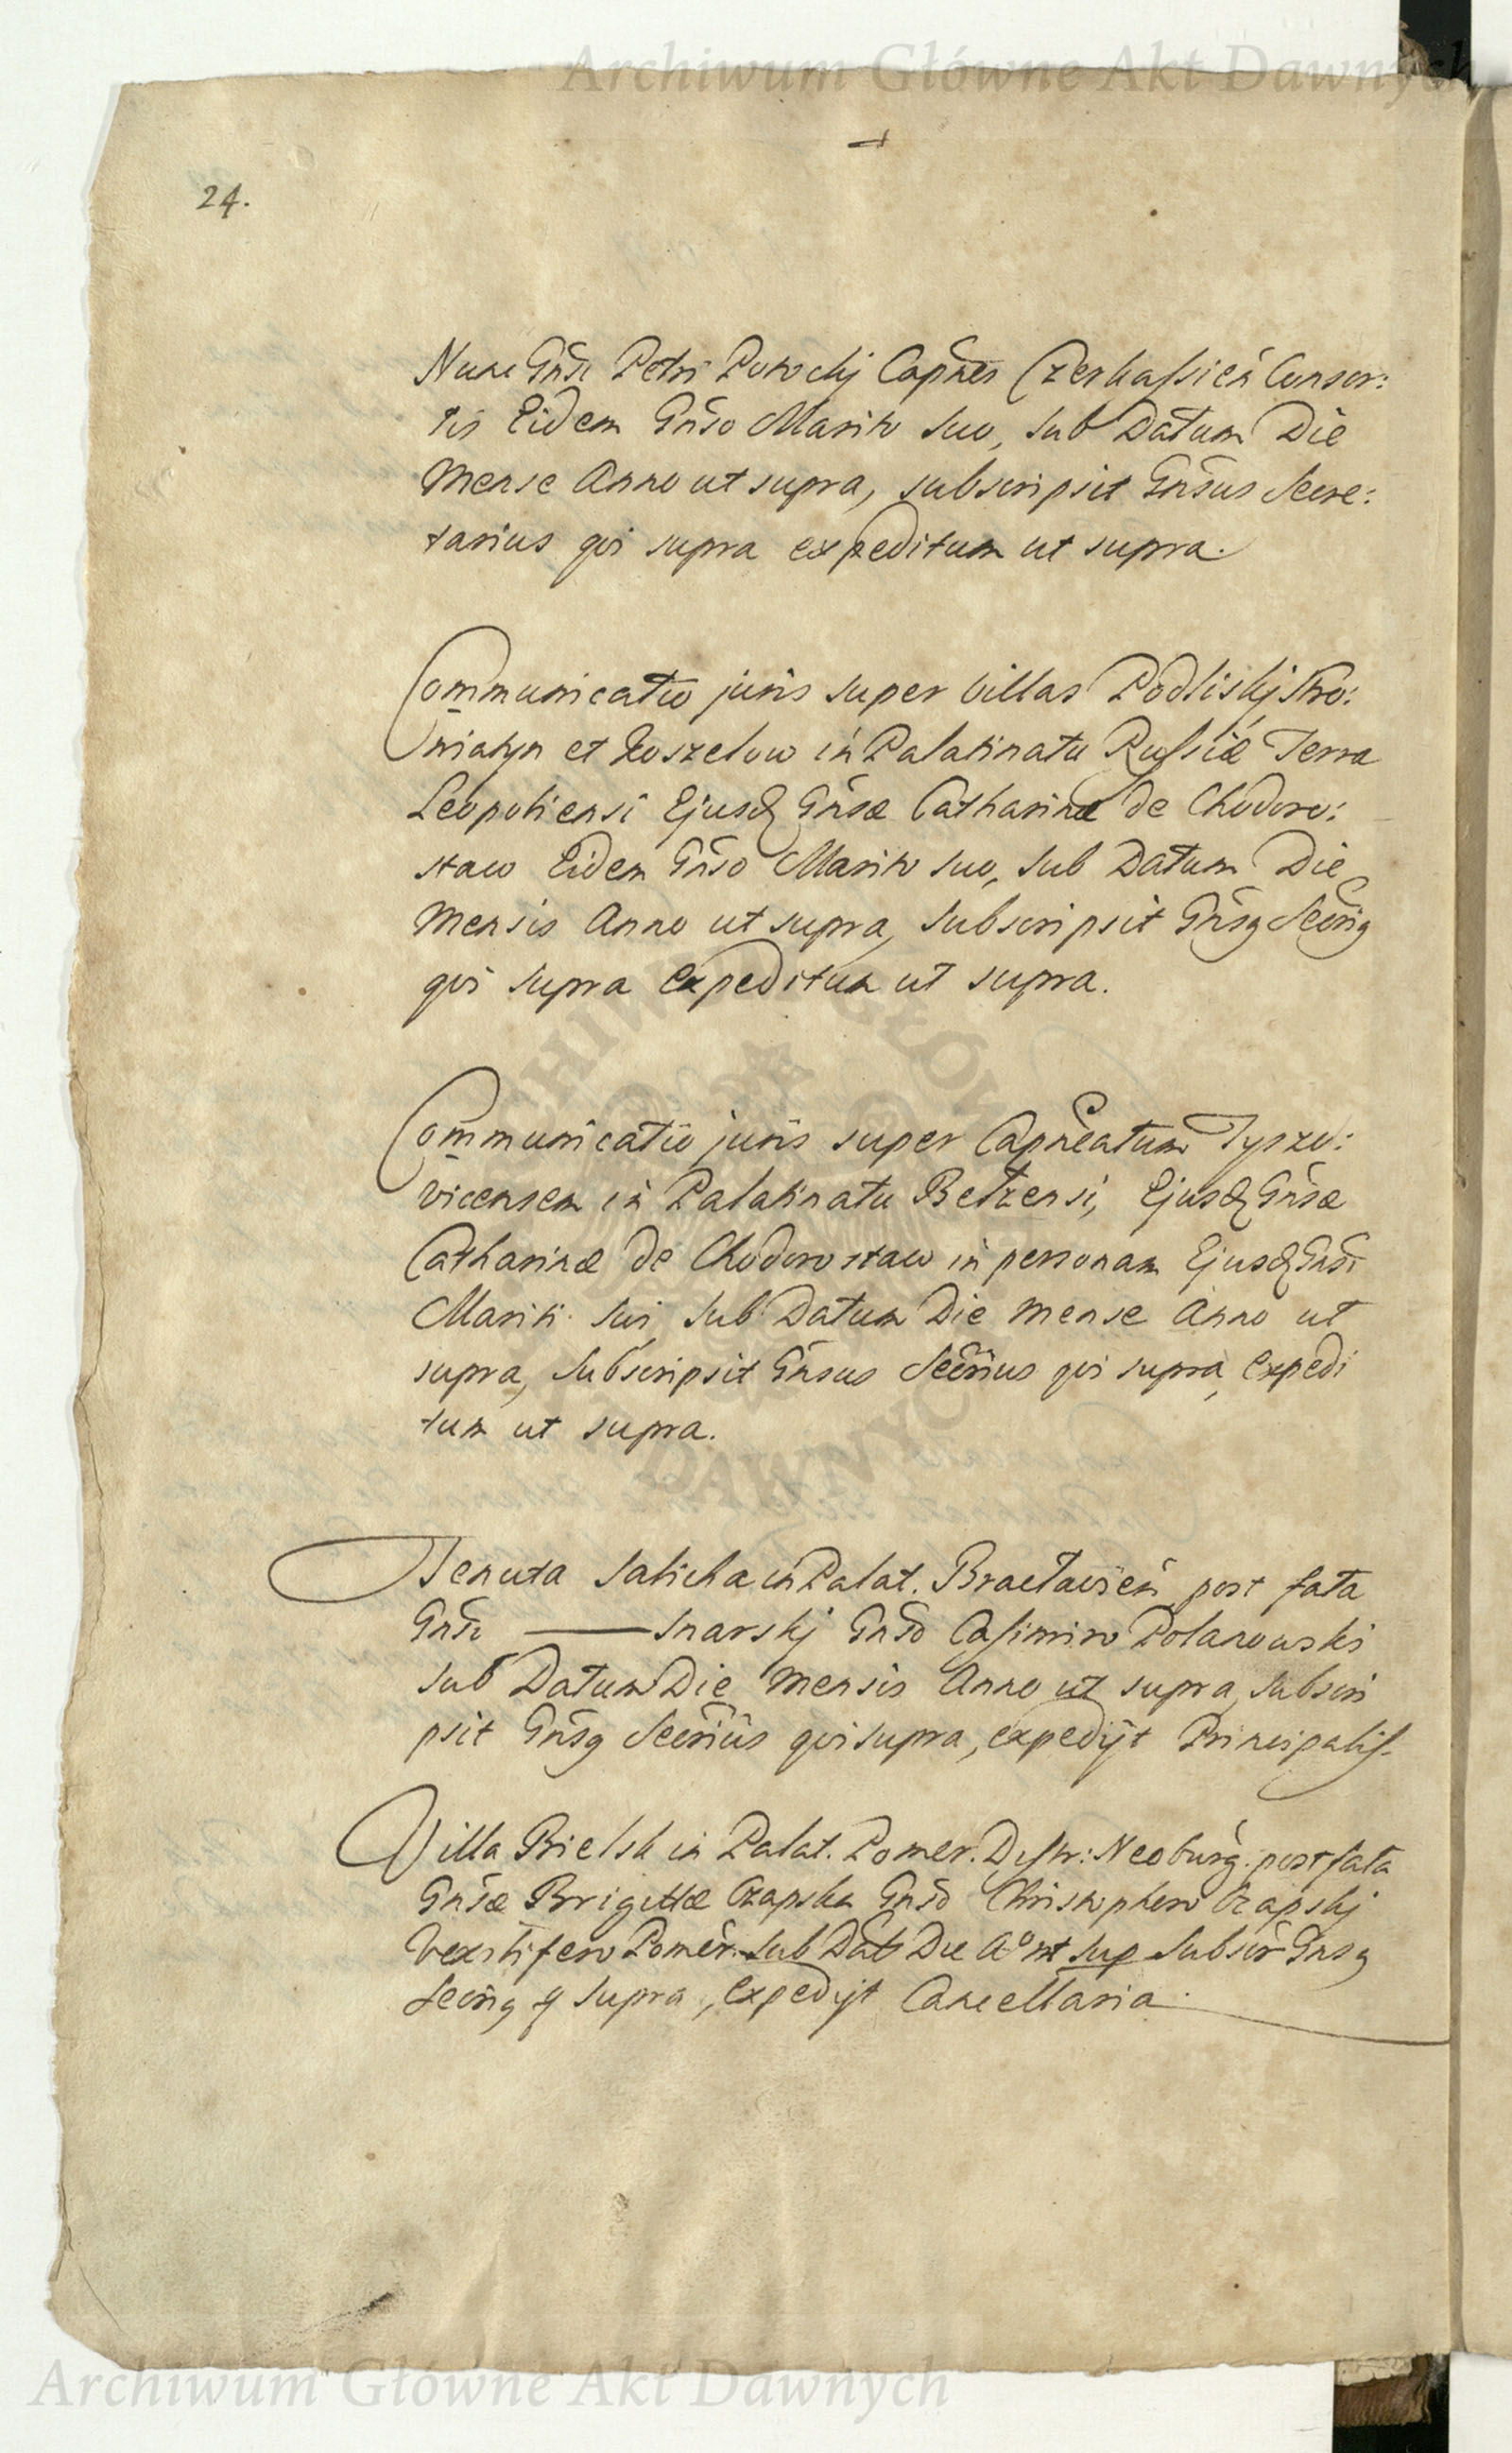 Archiwum Główne Akt Dawnych
24.
Nunc Gnsi Petri Potockj Capnei Czerkassień Consor:
tis Eidem Gnso Marito suo, sub Datum Die
Mense Anno ut supra, subscripsit Gnsus Secre:
tarius qui supra expeditum ut supra.
Communicatio juris super Villas Podliskj, Stro:
niatyn et Koszelow in Palatinatu Russiæ Terra
Leopoliensi Ejusdq Gnsæ Catharinæ de Chodoro:
staw Eidem Gnso Marito suo, sub Datum Die
Mensis Anno ut supra, subscripsit Gnsq Secriq
qui supra expeditum ut supra.
Communicatio juris super Capneatum Tyszo:
vicensem in Palatinatu Belzensi, Ejusdq Gnsæ
Catharinæ de Chodorostaw in personam Ejusdq Gnsi
Mariti sui, sub Datum Die Mense Anno ut
supra, subscripsit Gnsus Secrius qui supra, expedi
tum ut supra.
Tenuta Salicha in Palat. Braclavień post fata
Gnsi ——— Snarskj Gnso Casimiro Polanowski
sub Datum Die Mensis Anno ut supra, subscri
psit Gnsq Secrius qui supra, expedijt Principalis.
Villa Bielsk in Palat. Pomer. Distr: Neoburg: post fata
Gnsæ Brigittæ Czapska Gnso Christophero Czapskj
Vexillifero Pomer: sub Dat Die Aº ut sup subscr Gnsq
Secriq q supra, expedijt Cancellaria.
Archiwum Główne Akt Dawnych